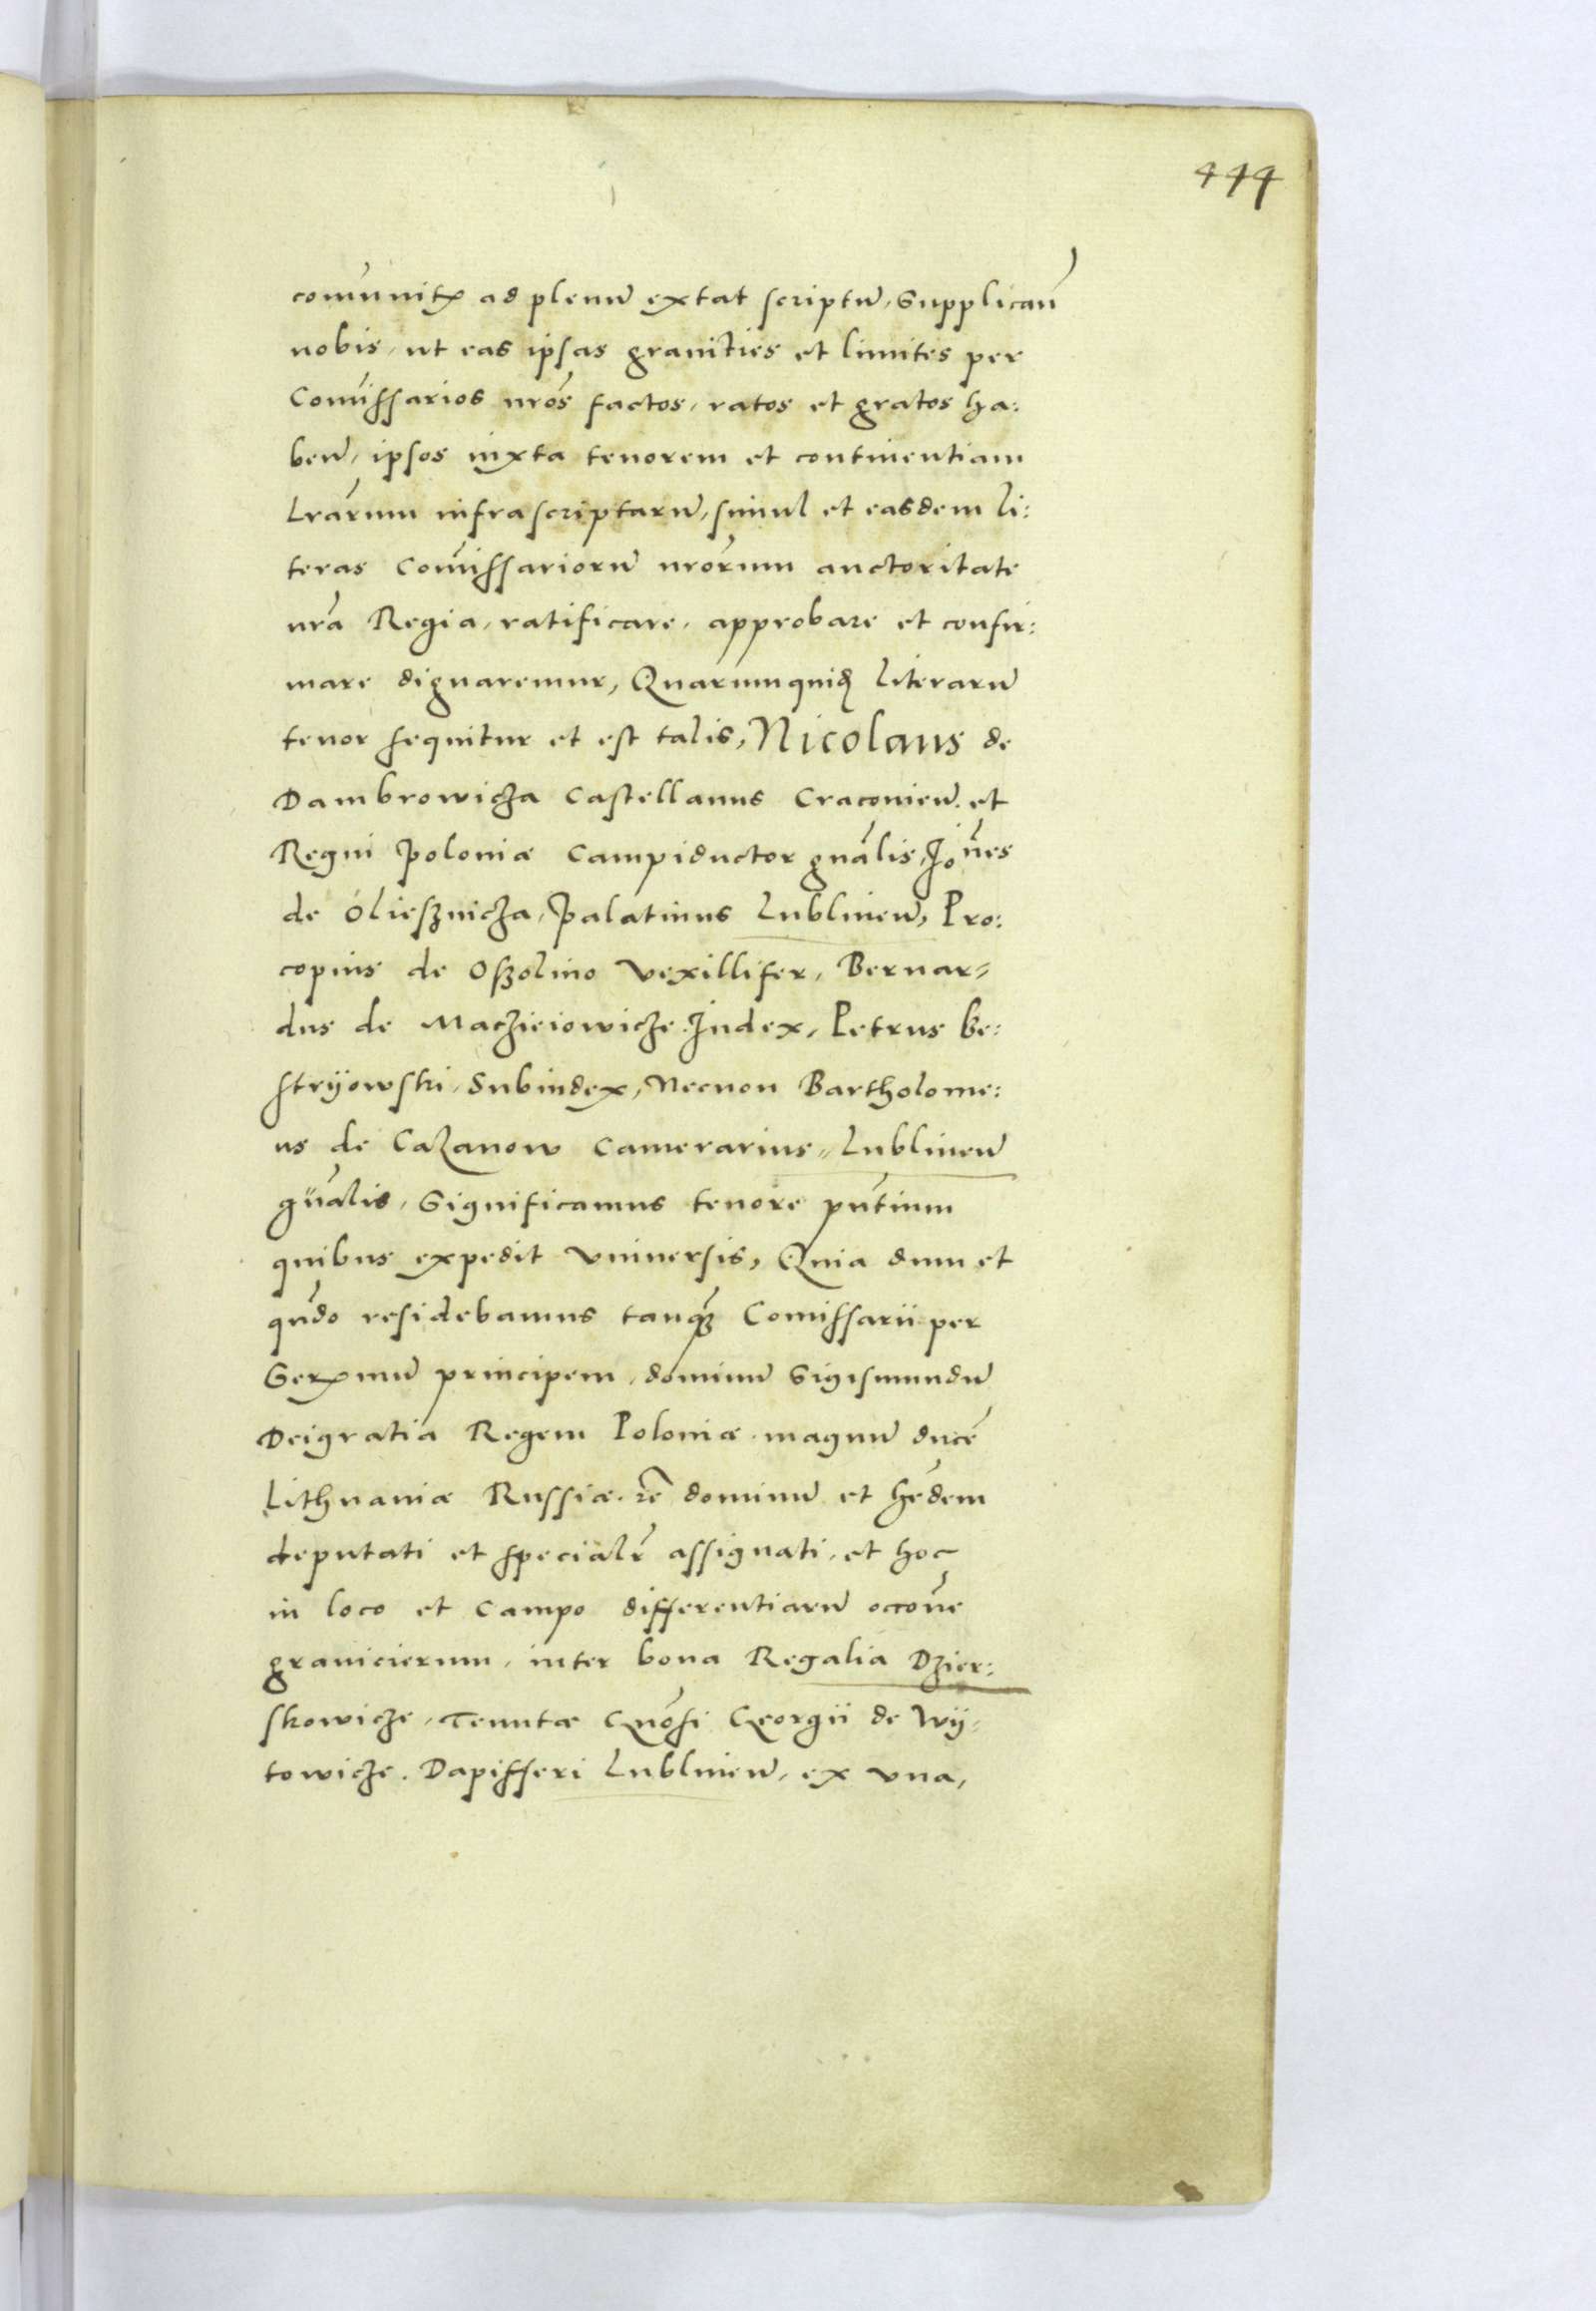 444
comunitẽ ad plenũ extat scriptũ, Supplicañ
nobis, ut eas ipsas granities et limites per
Comissarios nr̃os factos, ratos et gratos ha:
beñ, ipsos iuxta tenorem et continentiam
Lr̃arum infrascriptarũ, simul et easdem li:
teras Comissariorũ nr̃orum auctoritate
nr̃a Regia, ratificare, approbare et confir:
mare dignaremur, Quarumquid̃ Literarũ
tenor sequitur et est talis, Nicolaus de
Dambrowicza Castellanus Cracovieñ. et
Regni Poloniæ Campiductor gñalis, Ioñes
de Olieſznicza, Palatinus Lublineñ, Pro:
copius de Oſzolino Vexillifer, Bernar=
dus de Maczieiowicze Iudex, Petrus be:
strÿowski, Subiudex, Necnon Bartholome:
us de Cazanow Camerarius, Lublineñ
gñalis, Significamus tenore pñtium
quibus expedit Vniversis, Quia dum et
qñdo residebamus tanq̃ Comissarii per
Serẽmũ principem, dominũ Sigismundũ
Deigratia Regem Poloniæ, magnũ ducẽ
Lithvaniæ Russiæ. rẽ dominũ et hẽdem
deputati et specialr̃ assignati, et hoc
in loco et Campo differentiarũ occoñe
granicierum, inter bona Regalia Dzier:
skowicze, Tenutæ Gñosi Georgii de Wÿ=
towicze. Dapifferi Lublineñ, ex vna,